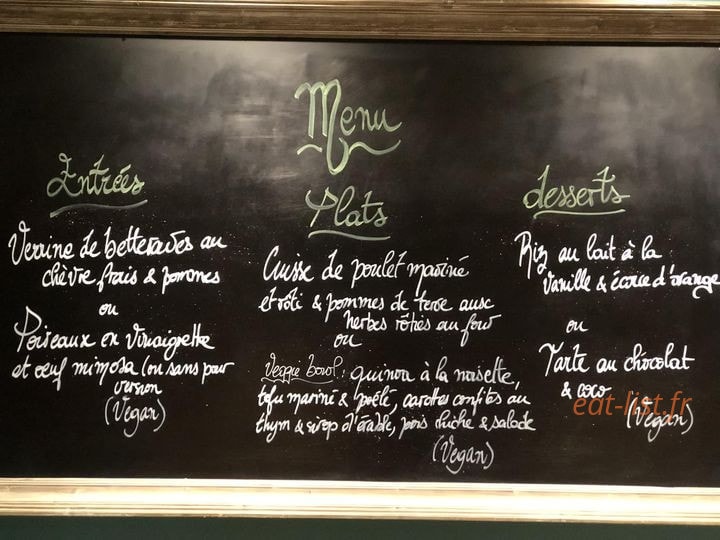 Menu
Entrées
Verrine de betteraves au
chèvre frais & pommes
ou
Poireaux en vinaigrette
et oeuf mimosa (ou sans pour
version
(Vegan)
Plats
Cuisse de poulet mariné
et rôti & pommes de terre aux
herbes rôties au four
ou
Veggie bowl : quinoa à la noisette,
tofu mariné & poêlé, carottes confites au
thym & sirop d'érable, pois chiche & salade
(Vegan)
desserts
Riz au lait à la
vanille & écorce d'orange
ou
Tarte au chocolat
& coco
(Vegan)
eat-list.fr